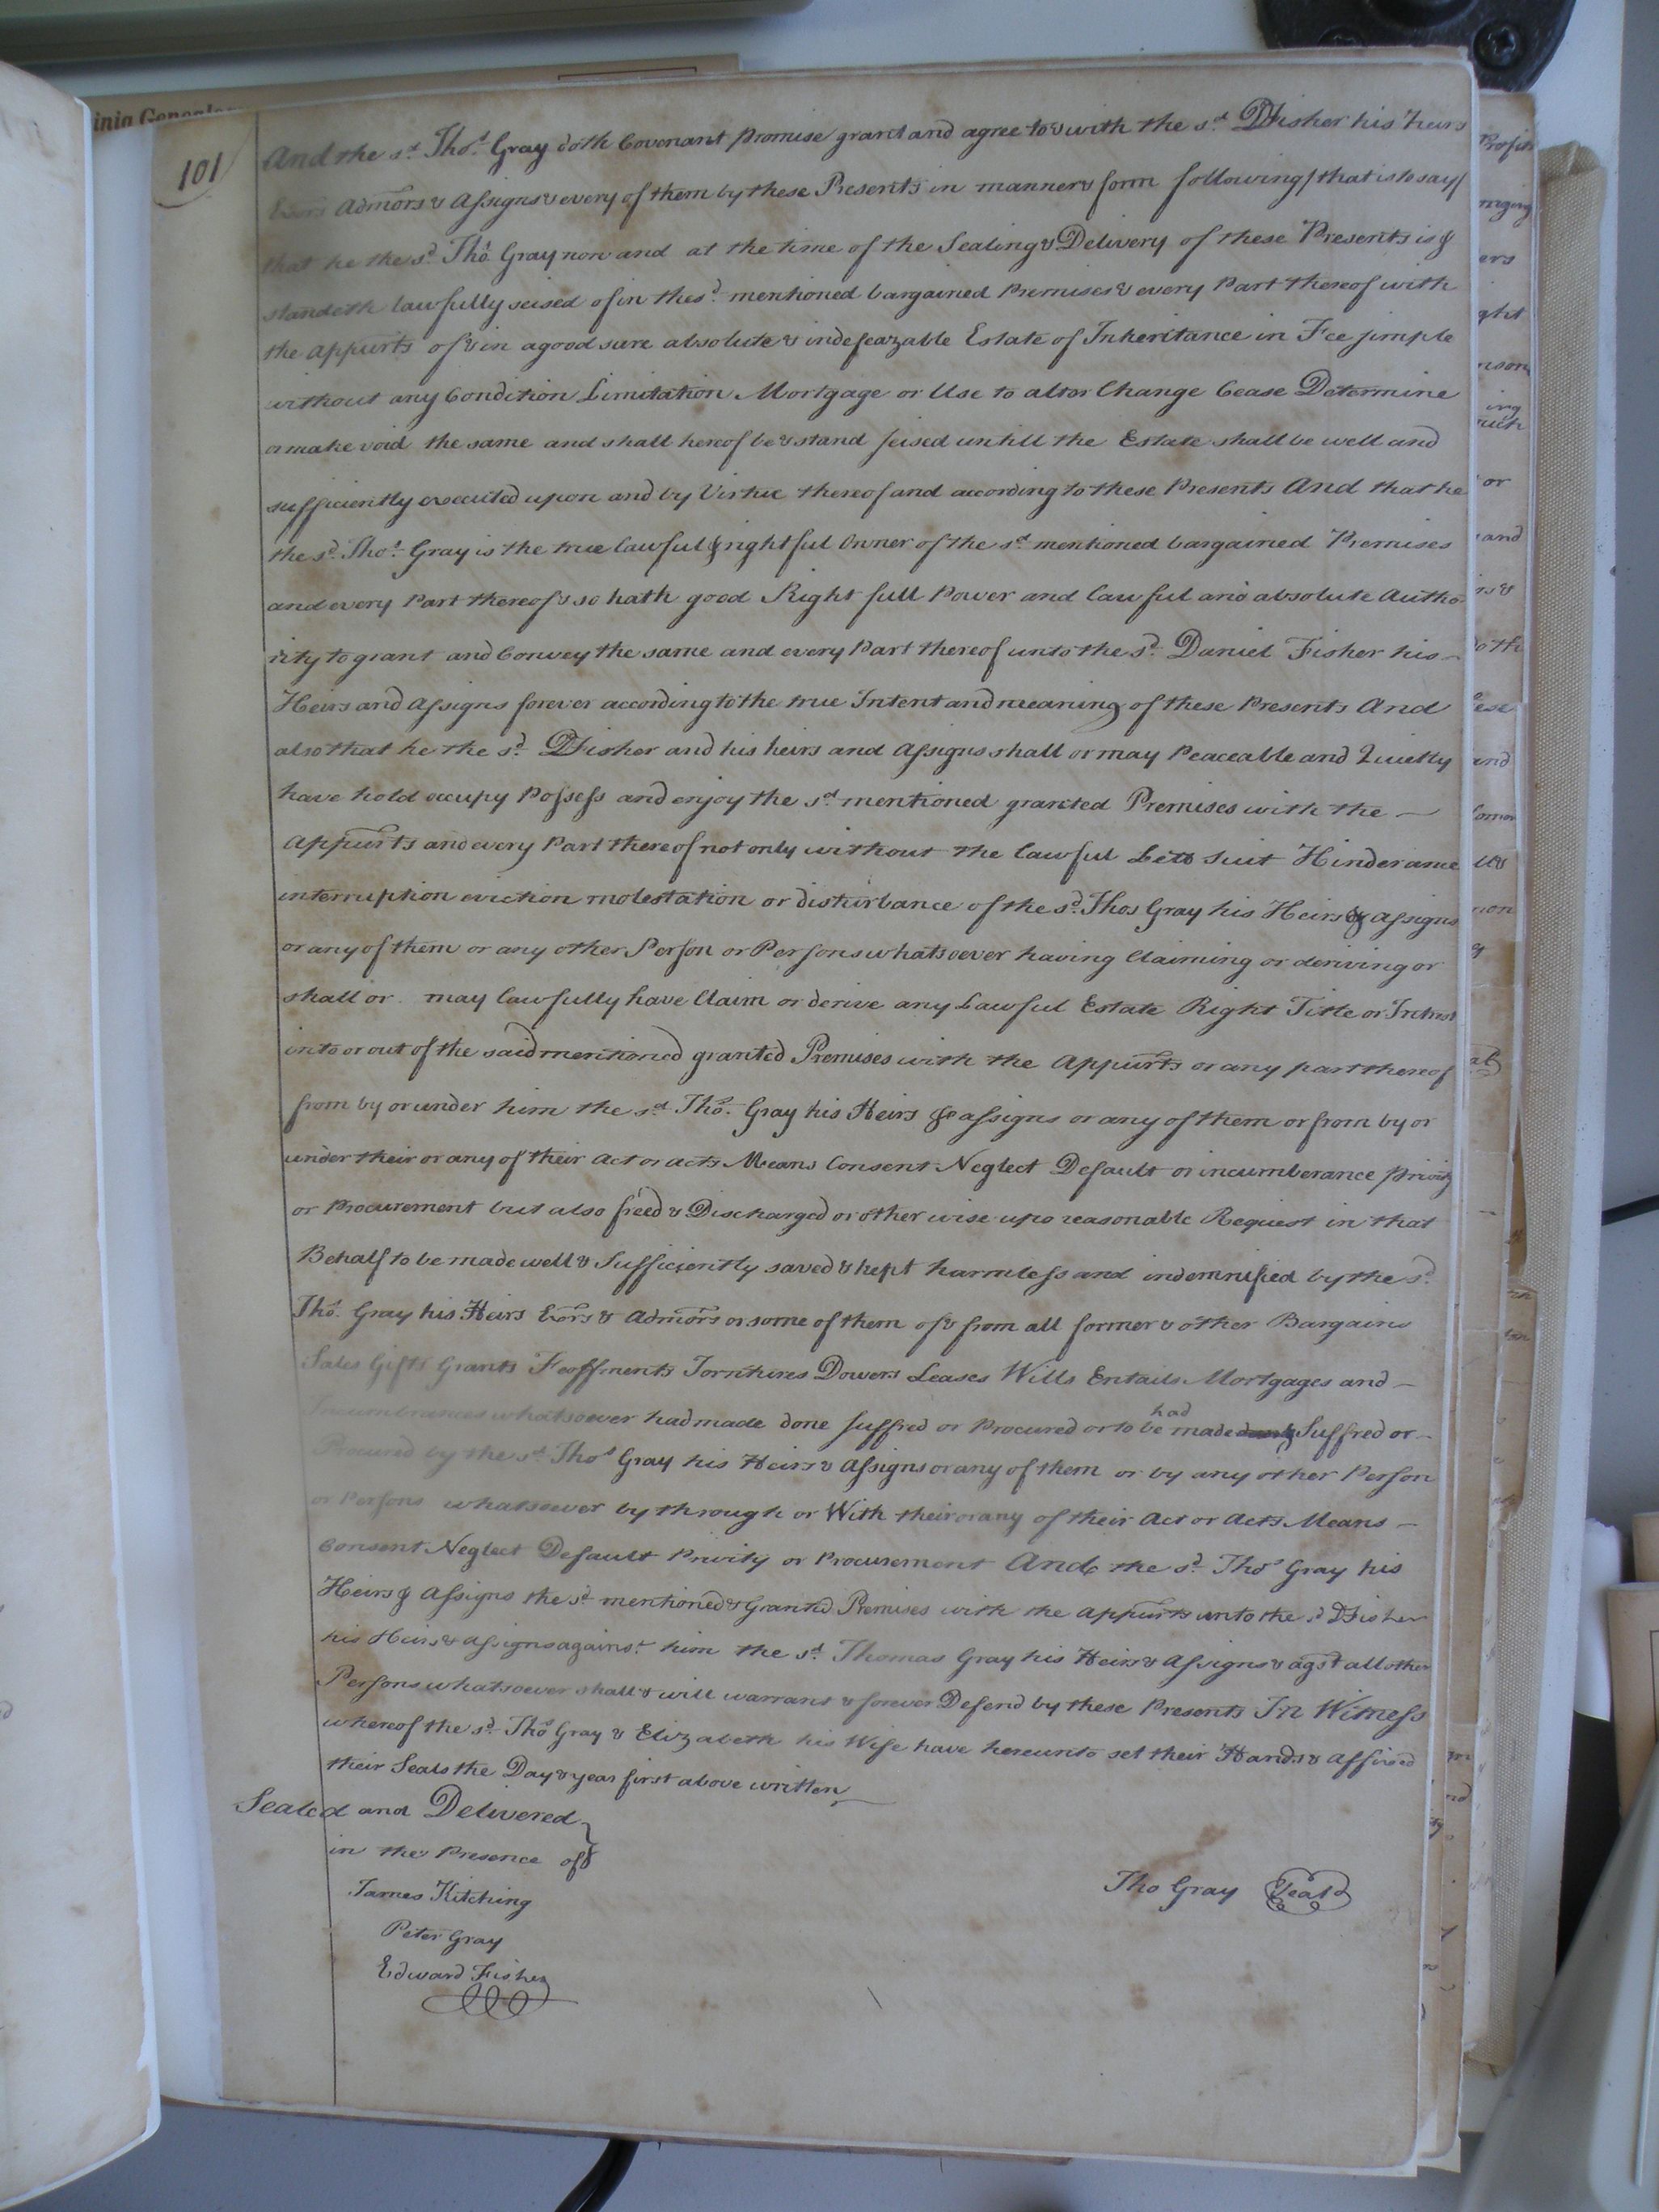 inia Genealo
101
And the sd. Thos. Gray doth Covenant Promise grant and agree to & with the sd. DFisher his Heirs
Exors Admors & Assigns & every of them by these Presents in manner & form following / that is to say /
that he the sd. Thos. Gray now and at the time of the Sealing & Delivery of these Presents is &
standeth lawfully seised of in the sd. mentioned bargained Premises & every Part thereof with
the appurts of & in a good sure absolute & indefeazable Estate of Inheritance in Fee simple
without any Condition Limitation Mortgage or Use to alter Change Cease Determine
or make void the same and shall hereof be & stand seised untill the Estate shall be well and
sufficiently executed upon and by Virtue thereof and according to these Presents And that he
the sd. Thos. Gray is the true lawful & rightful Owner of the sd. mentioned bargained Premises
and every Part thereof & so hath good Right full Power and lawful and absolute Autho
rity to grant and Convey the same and every Part thereof unto the sd. Daniel Fisher his
Heirs and Assigns forever according to the true Intent and meaning of these Presents And
also that he the sd. DFisher and his heirs and Assigns shall or may Peaceable and Quietly
have hold occupy Possess and enjoy the sd. mentioned granted Premises with the
Appurts and every Part thereof not only without the lawful Lett suit Hinderance
interruption eviction molestation or disturbance of the sd. Thos Gray his Heirs & Assigns
or any of them or any other Person or Persons whatsoever having Claiming or deriving or
shall or may lawfully have Claim or derive any Lawful Estate Right Title or Intrest
into or out of the said mentioned granted Premises with the Appurts or any part thereof
from by or under him the sd. Thos. Gray his Heirs & assigns or any of them or from by or
under their or any of their Act or acts Means Consent Neglect Default or incumberance Privity
or Procurement but also freed & Discharged or otherwise upo reasonable Request in that
Behalf to be made well & Sufficiently saved & kept harmless and indemnified by the sd.
Thos. Gray his Heirs Exors & Admors or some of them of & from all former & other Bargains
Sales Gifts Grants Feoffments Jointures Dowers Leases Wills Entails Mortgages and
Incumbrances whatsoever had made done suffred or Procured or to be had made Suffred or
Procured by the sd. Thos Gray his Heirs & Assigns or any of them or by any other Person
or Persons whatsoever by through or With their or any of their Act or Acts Means
Consent Neglect Default Privity or Procurement And the sd. Thos Gray his
Heirs & Assigns the sd. mentioned & Granted Premises with the Appurts unto the sd DFisher
his Heirs & Assigns against him the sd. Thomas Gray his Heirs & Assigns & agst all other
Persons whatsoever shall & will warrant & forever Defend by these Presents In Witness
whereof the sd. Thos Gray & Elizabeth his Wife have hereunto set their Hands & affixed
their Seals the Day & year first above written
Sealed and Delivered
in the Presence of
James Kitching
Peter Gray
Edward Fisher
Tho Gray Seal